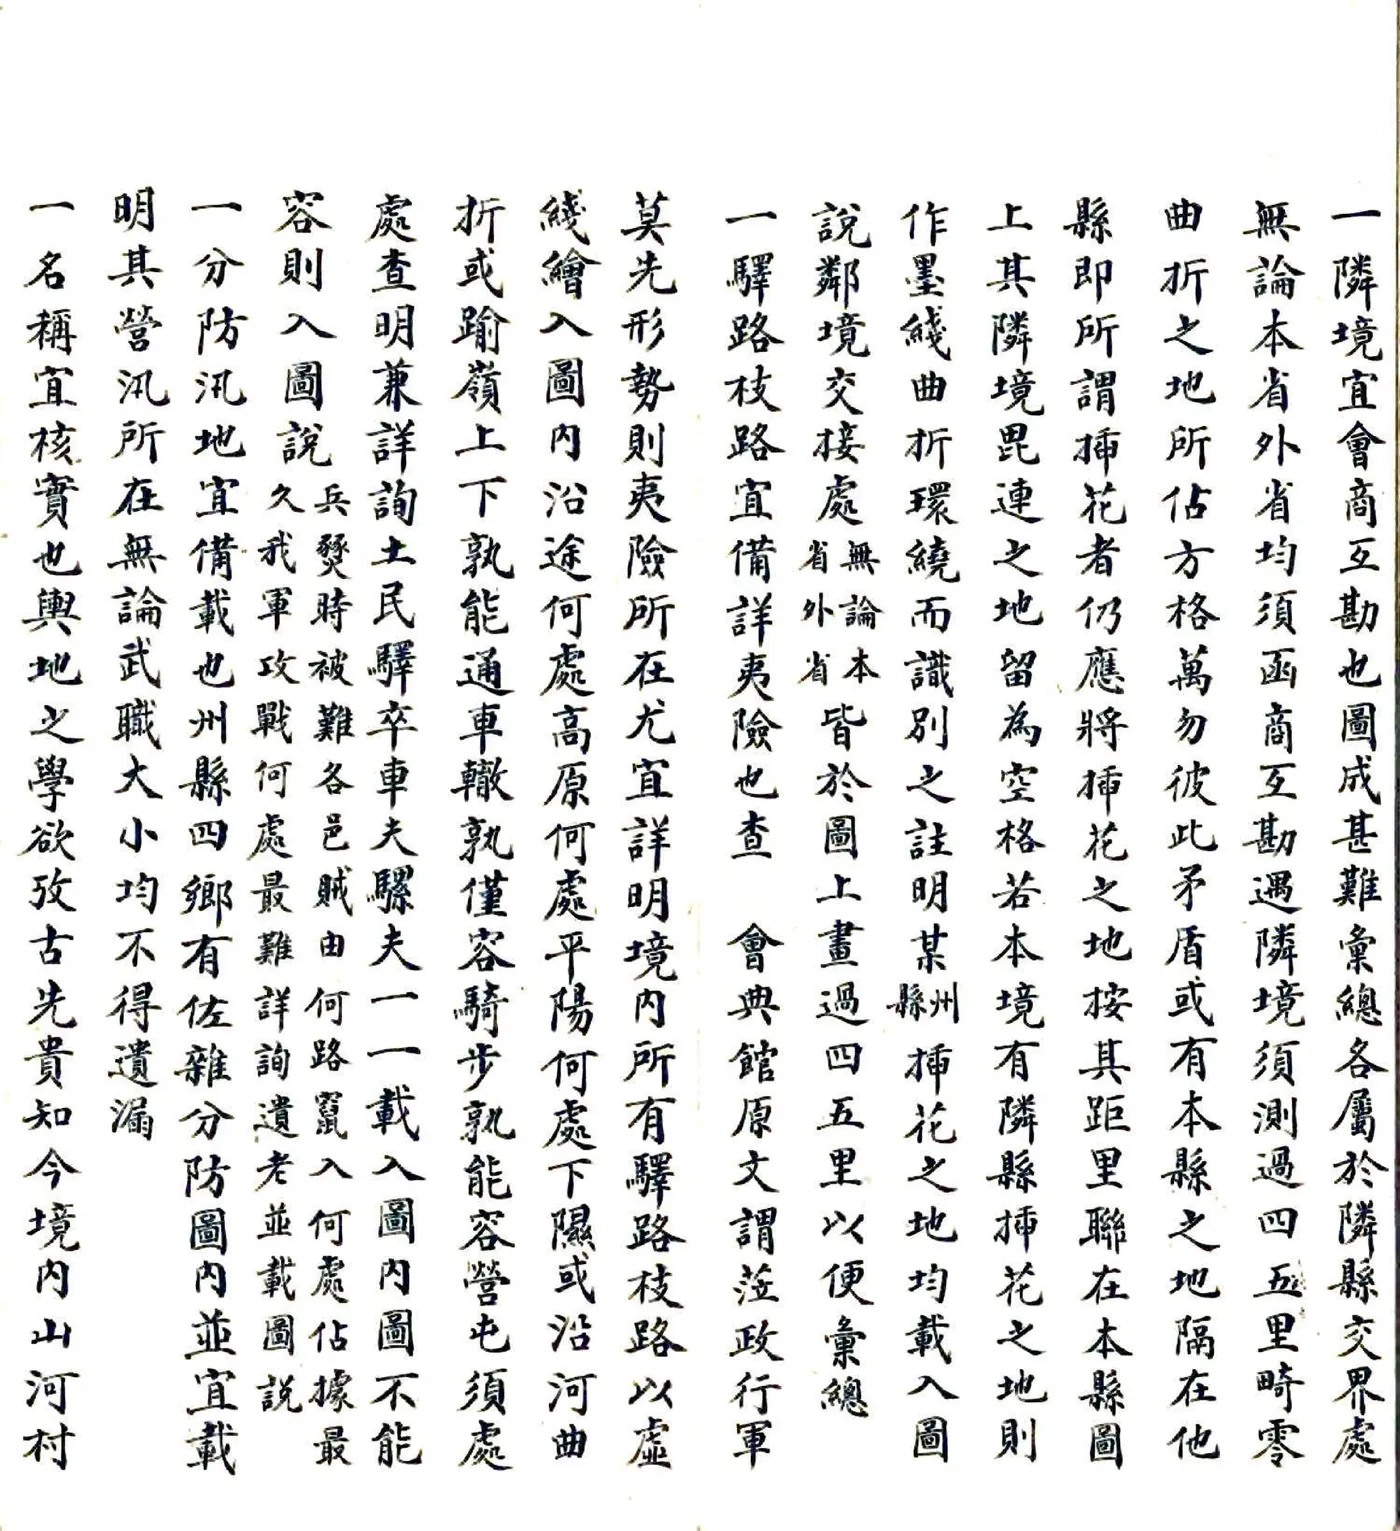 一隣境宜會商互勘也圖成甚難彙總各屬於隣縣交界處
無論本省外省均須函商互勘遇隣境須測過四五里畸零
曲折之地所佔方格萬勿彼此矛盾或有本縣之地隔在他
縣即所謂挿花者仍應將挿花之地按其距里聯在本縣圖
上其隣境毘連之地留為空格若本境有隣縣挿花之地則
作墨綫曲折環繞而識別之註明某州縣挿花之地均載入圖
說鄰境交接處無論本省外省皆於圖上畫過四五里以便彙總
一驛路枝路宜備詳夷險也查 會典館原文謂蒞政行軍
莫先形勢則夷險所在尤宜詳明境內所有驛路枝路以虛
綫繪入圖內沿途何處高原何處平陽何處下隰或沿河曲
折或踰嶺上下孰能通車轍孰僅容騎步孰能容營屯須處
處查明兼詳詢土民驛卒車夫騾夫一一載入圖內圖不能
容則入圖說兵燹時被難各邑賊由何路竄入何處佔據最久我軍攻戰何處最難詳詢遺老並載圖說
一分防汛地宜備載也州縣四鄉有佐雜分防圖內並宜載
明其營汛所在無論武職大小均不得遺漏
一名稱宜核實也輿地之學欲攷古先貴知今境內山河村